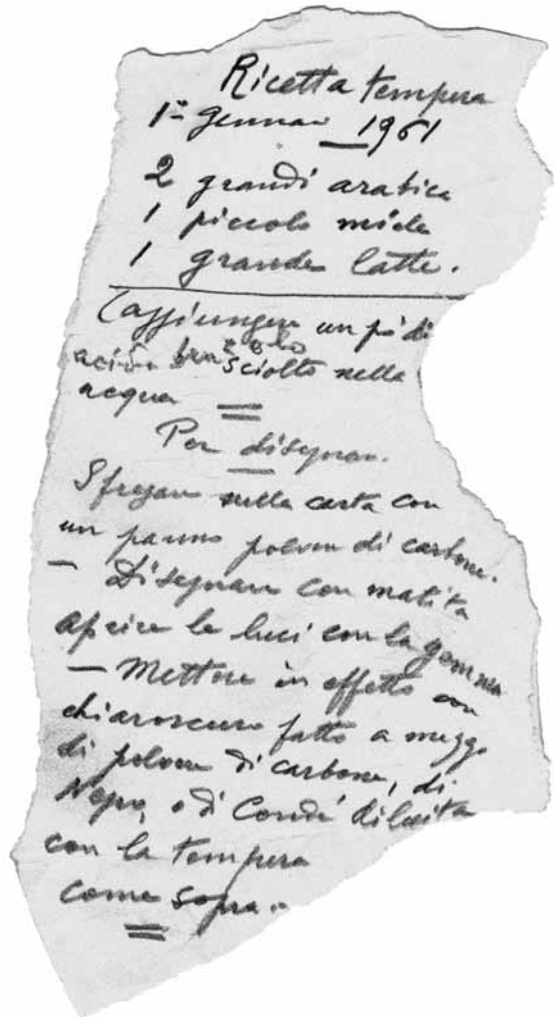 Ricetta tempera
1º Gennaio 1961
2 grandi arabica
1 piccolo miele
1 grande latte.
(aggiungere un pò di
acido sciolto nella
acqua
Per disegnare.
Sfregare nella carta con
un panno polvere di carbone.
— Disegnare con matita
aprire le luci con la gomma
— Mettere in effetto con
chiaroscuro fatto a mezzo
di polvere di carbone, di
Nero, o di Condé diluita
con la tempera
come sopra.